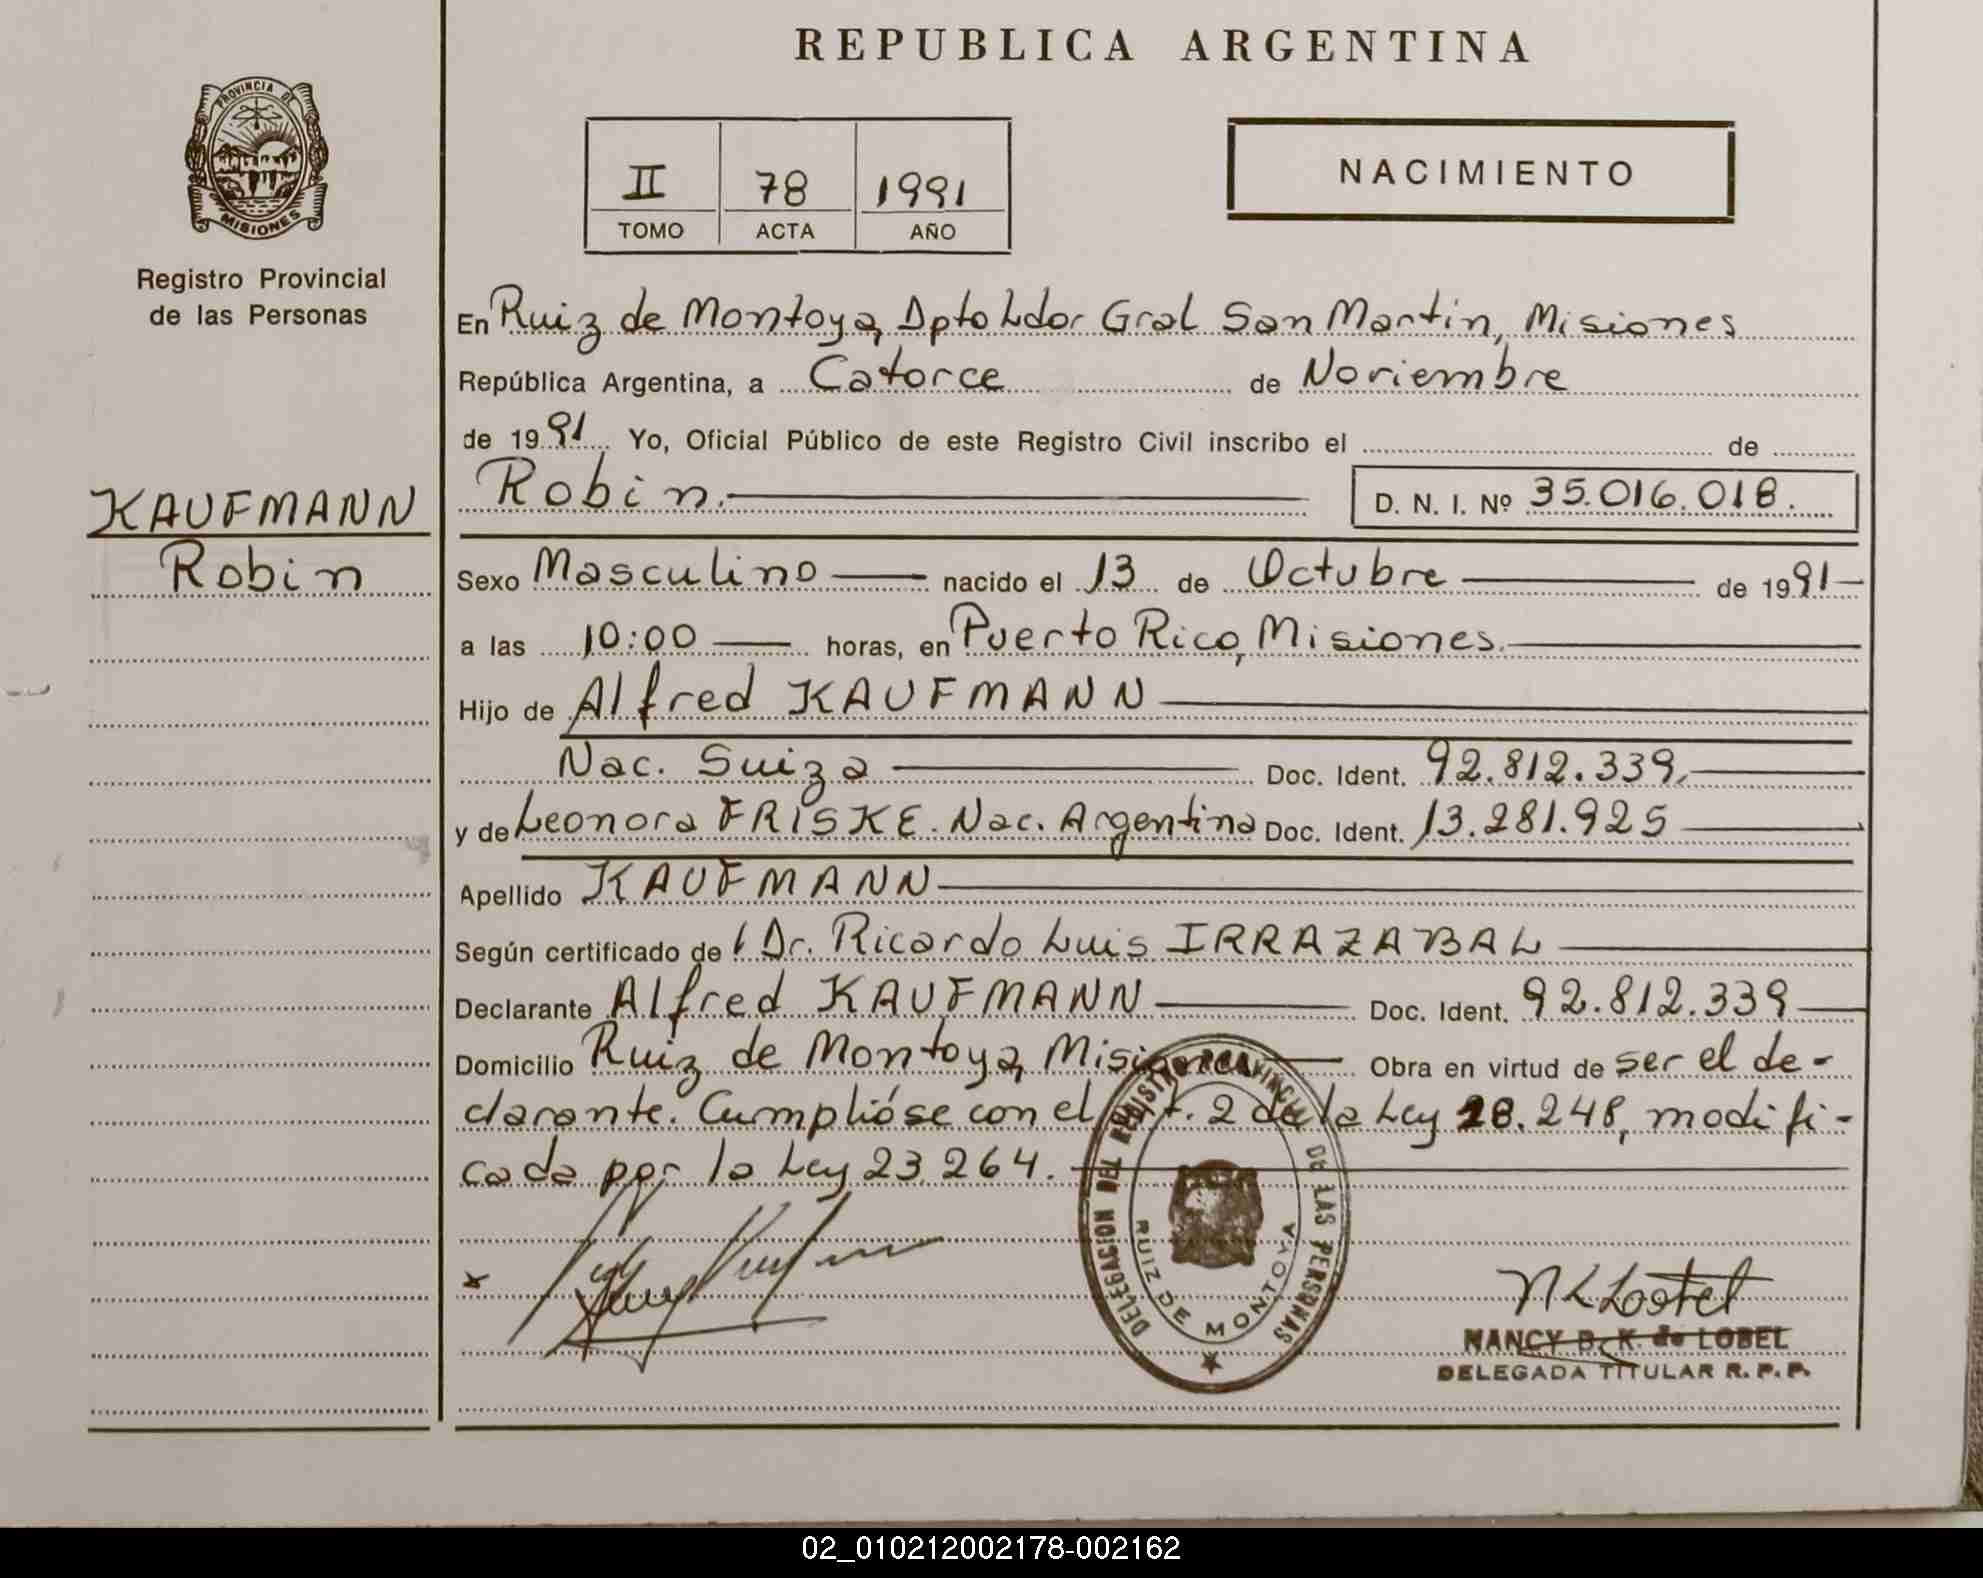 REPUBLICA ARGENTINA
PROVINCIA DE
MISIONES
Registro Provincial
de las Personas
II 78 1991
TOMO ACTA AÑO
NACIMIENTO
KAUFMANN
Robin
En Ruiz de Montoya, Dpto Ldor Gral San Martin, Misiones
República Argentina, a Catorce de Noviembre
de 1991 Yo, Oficial Público de este Registro Civil inscribo el de
Robin. D. N. I. Nº 35.016.018.
Sexo Masculino nacido el 13 de Octubre de 1991
a las 10:00 horas, en Puerto Rico, Misiones.
Hijo de Alfred KAUFMANN
Nac. Suiza Doc. Ident. 92.812.339.
y de Leonora FRISKE. Nac. Argentina Doc. Ident. 13.281.925
Apellido KAUFMANN
Según certificado de Dr. Ricardo Luis IRRAZABAL
Declarante Alfred KAUFMANN Doc. Ident. 92.812.339
Domicilio Ruiz de Montoya, Misiones Obra en virtud de ser el de-
clarante. Cumplióse con el Art. 2 de la Ley 18.248, modifi-
cada por la Ley 23.264.
DELEGACION DEL REGISTRO PROVINCIAL DE LAS PERSONAS
RUIZ DE MONTOYA
NANCY B. K. de LOBEL
DELEGADA TITULAR R. P. P.
02_010212002178-002162